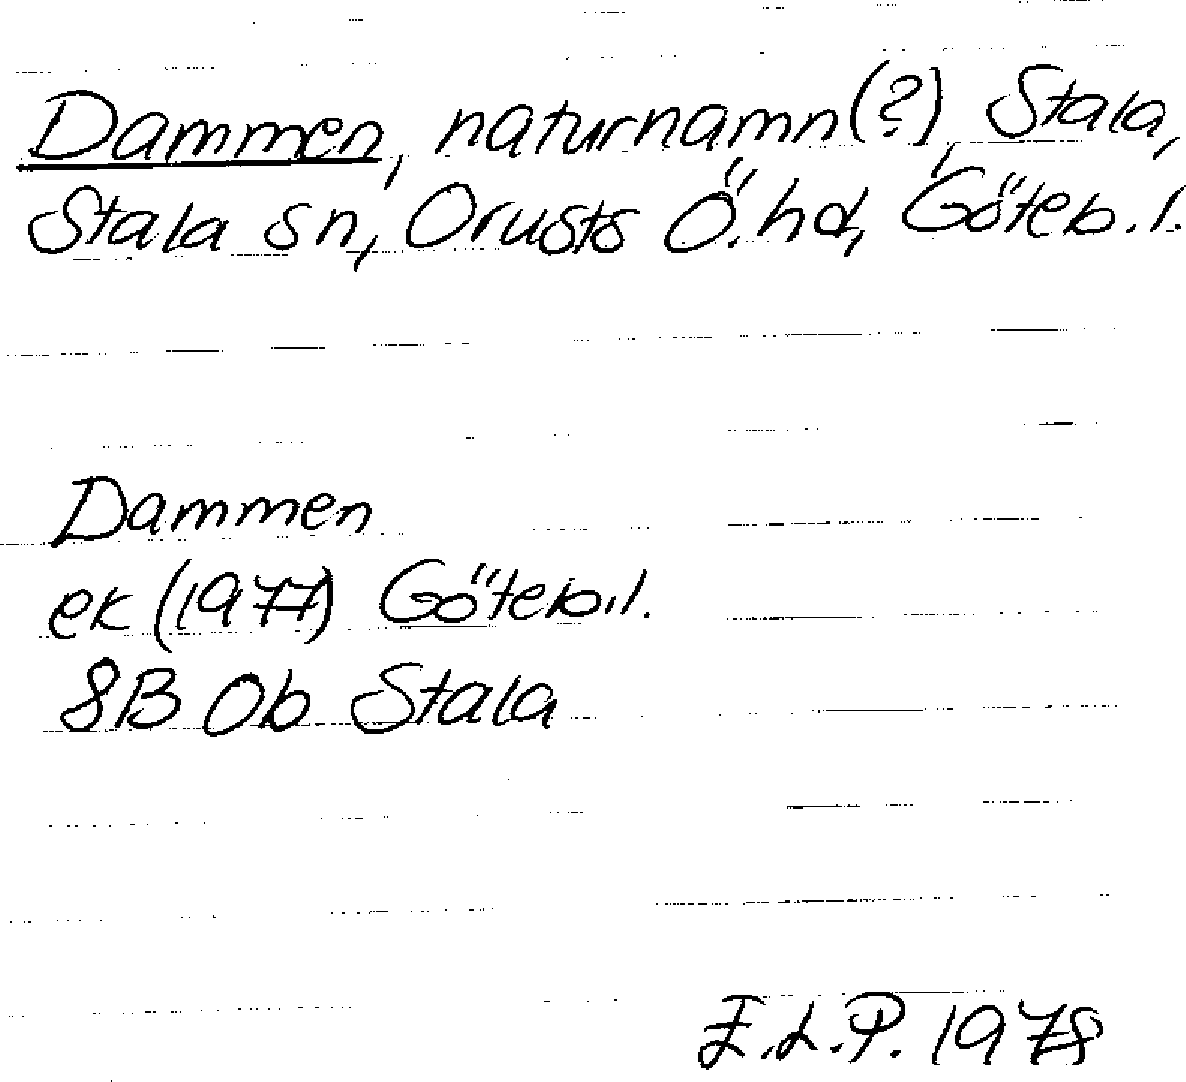 Dammen, naturnamn(?), Stala,
Stala sn, Orusts Ö. hd, Göteb. l.
Dammen
ek (1977) Göteb. l.
8B 0b Stala
E.L.P. 1978